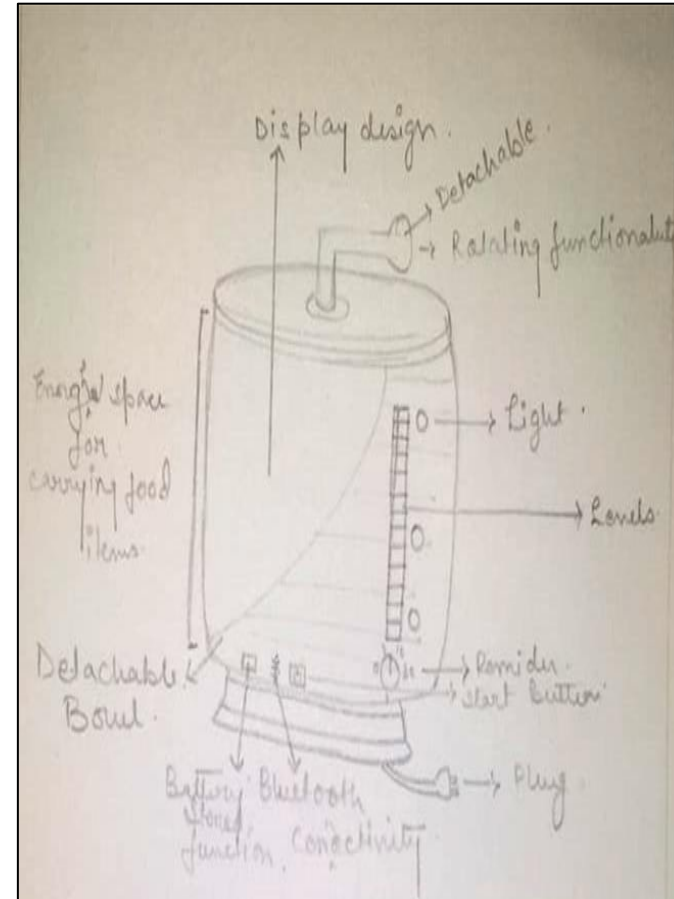 Display design.
Detachable.
Rotating functionality
space
for
carrying food
items.
Light.
Levels.
Detachable
Bowl.
Start Button
Plug
Battery
function.
Bluetooth
Conectivity